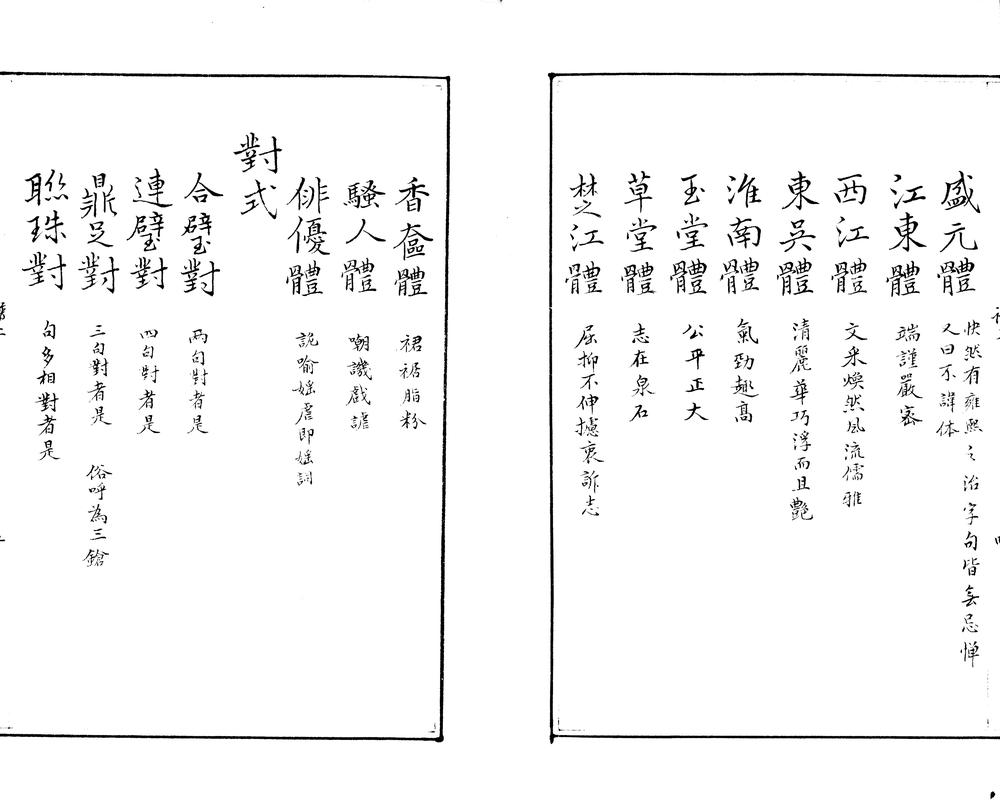 盛元體 快然有雍熙之治字句皆無忌憚
又曰不諱体
江東體 端謹嚴密
西江體 文采煥然風流儒雅
東吳體 清麗華巧浮而且艷
淮南體 氣勁趣高
玉堂體 公平正大
草堂體 志在泉石
楚江體 屈抑不伸攄衷訴志
香奩體 裙裾脂粉
騷人體 嘲譏戲謔
俳優體 詭喻媱虐即媱詞
對式
合璧對 兩句對者是
連璧對 四句對者是
鼎足對 三句對者是 俗呼為三鎗
聯珠對 句多相對者是